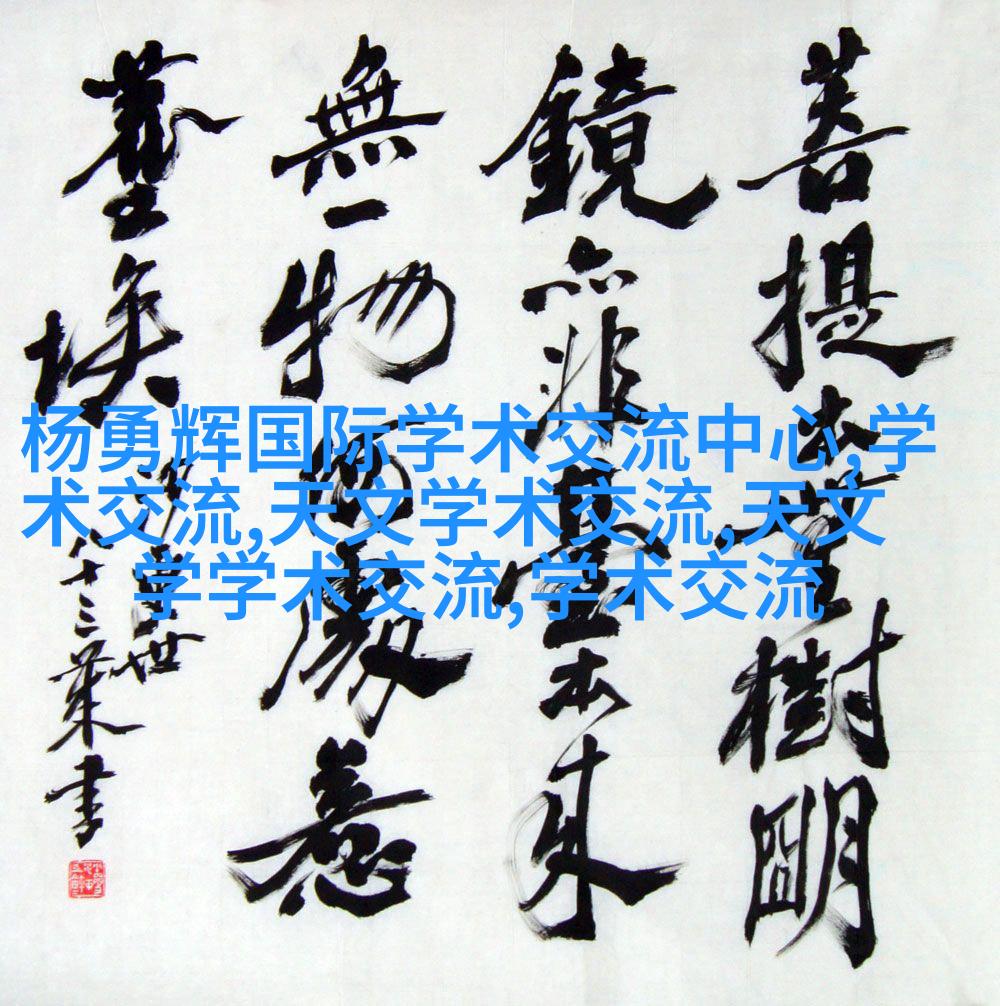 杨勇辉国际学术交流中心,学
术交流,天文学术交流,天文
学学术交流,学术交流
菩提本無樹明
鏡亦非臺本來
無一物何處惹
塵埃
八十三葉書